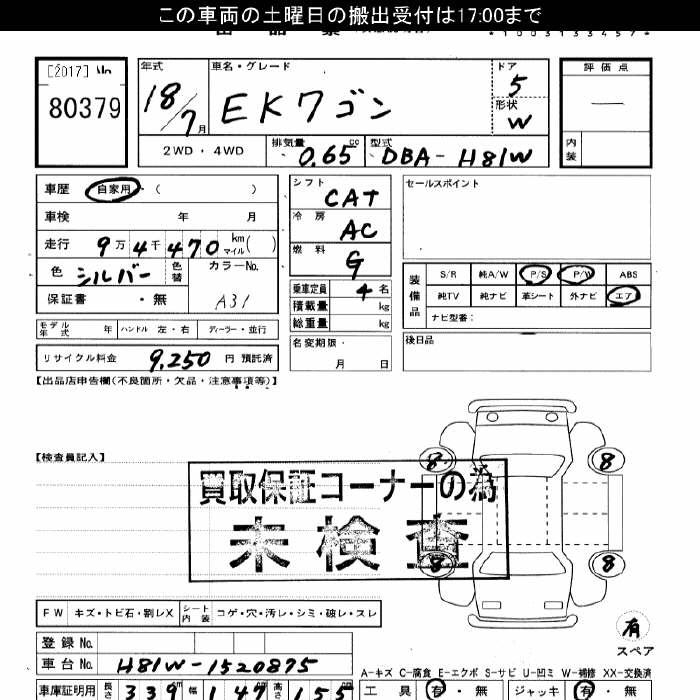 この車両の土曜日の搬出受付は17:00まで
*1003133457*
[2017] No
80379
年式 18/7月
車名・グレード EKワゴン
ドア 5
形状 W
評価点 —
内装
2WD・4WD
排気量 0.65 cc
型式 DBA-H81W
車歴 自家用 ( )
車検 年 月
走行 9万4千470 km マイル ( )
色 シルバー 色替
カラーNo. A31
保証書 ・無
シフト CAT
冷房 AC
燃料 G
乗車定員 4名
積載量 kg
総重量 kg
セールスポイント
装備品
S/R 純A/W P/S P/W ABS
純TV 純ナビ 革シート 外ナビ エア
ナビ型番:
モデル年式 年 ハンドル 左・右 ディーラー・並行
リサイクル料金 9,250 円 預託済
名変期限・ 月 日
後日品
【出品店申告欄(不良箇所・欠品・注意事項等)】
【検査員記入】
買取保証コーナーの為
未検査
8 8
8 8
FW キズ・トビ石・割レX シート内装 コゲ・穴・汚レ・シミ・破レ・スレ
有
スペア
登録No.
車台No. H81W-1520875
A-キズ C-腐食 E-エクボ S-サビ U-凹ミ W-補修 XX-交換済
車庫証明用 長さ 339 幅 147 高さ 155
工具 有・無 ジャッキ 有・無